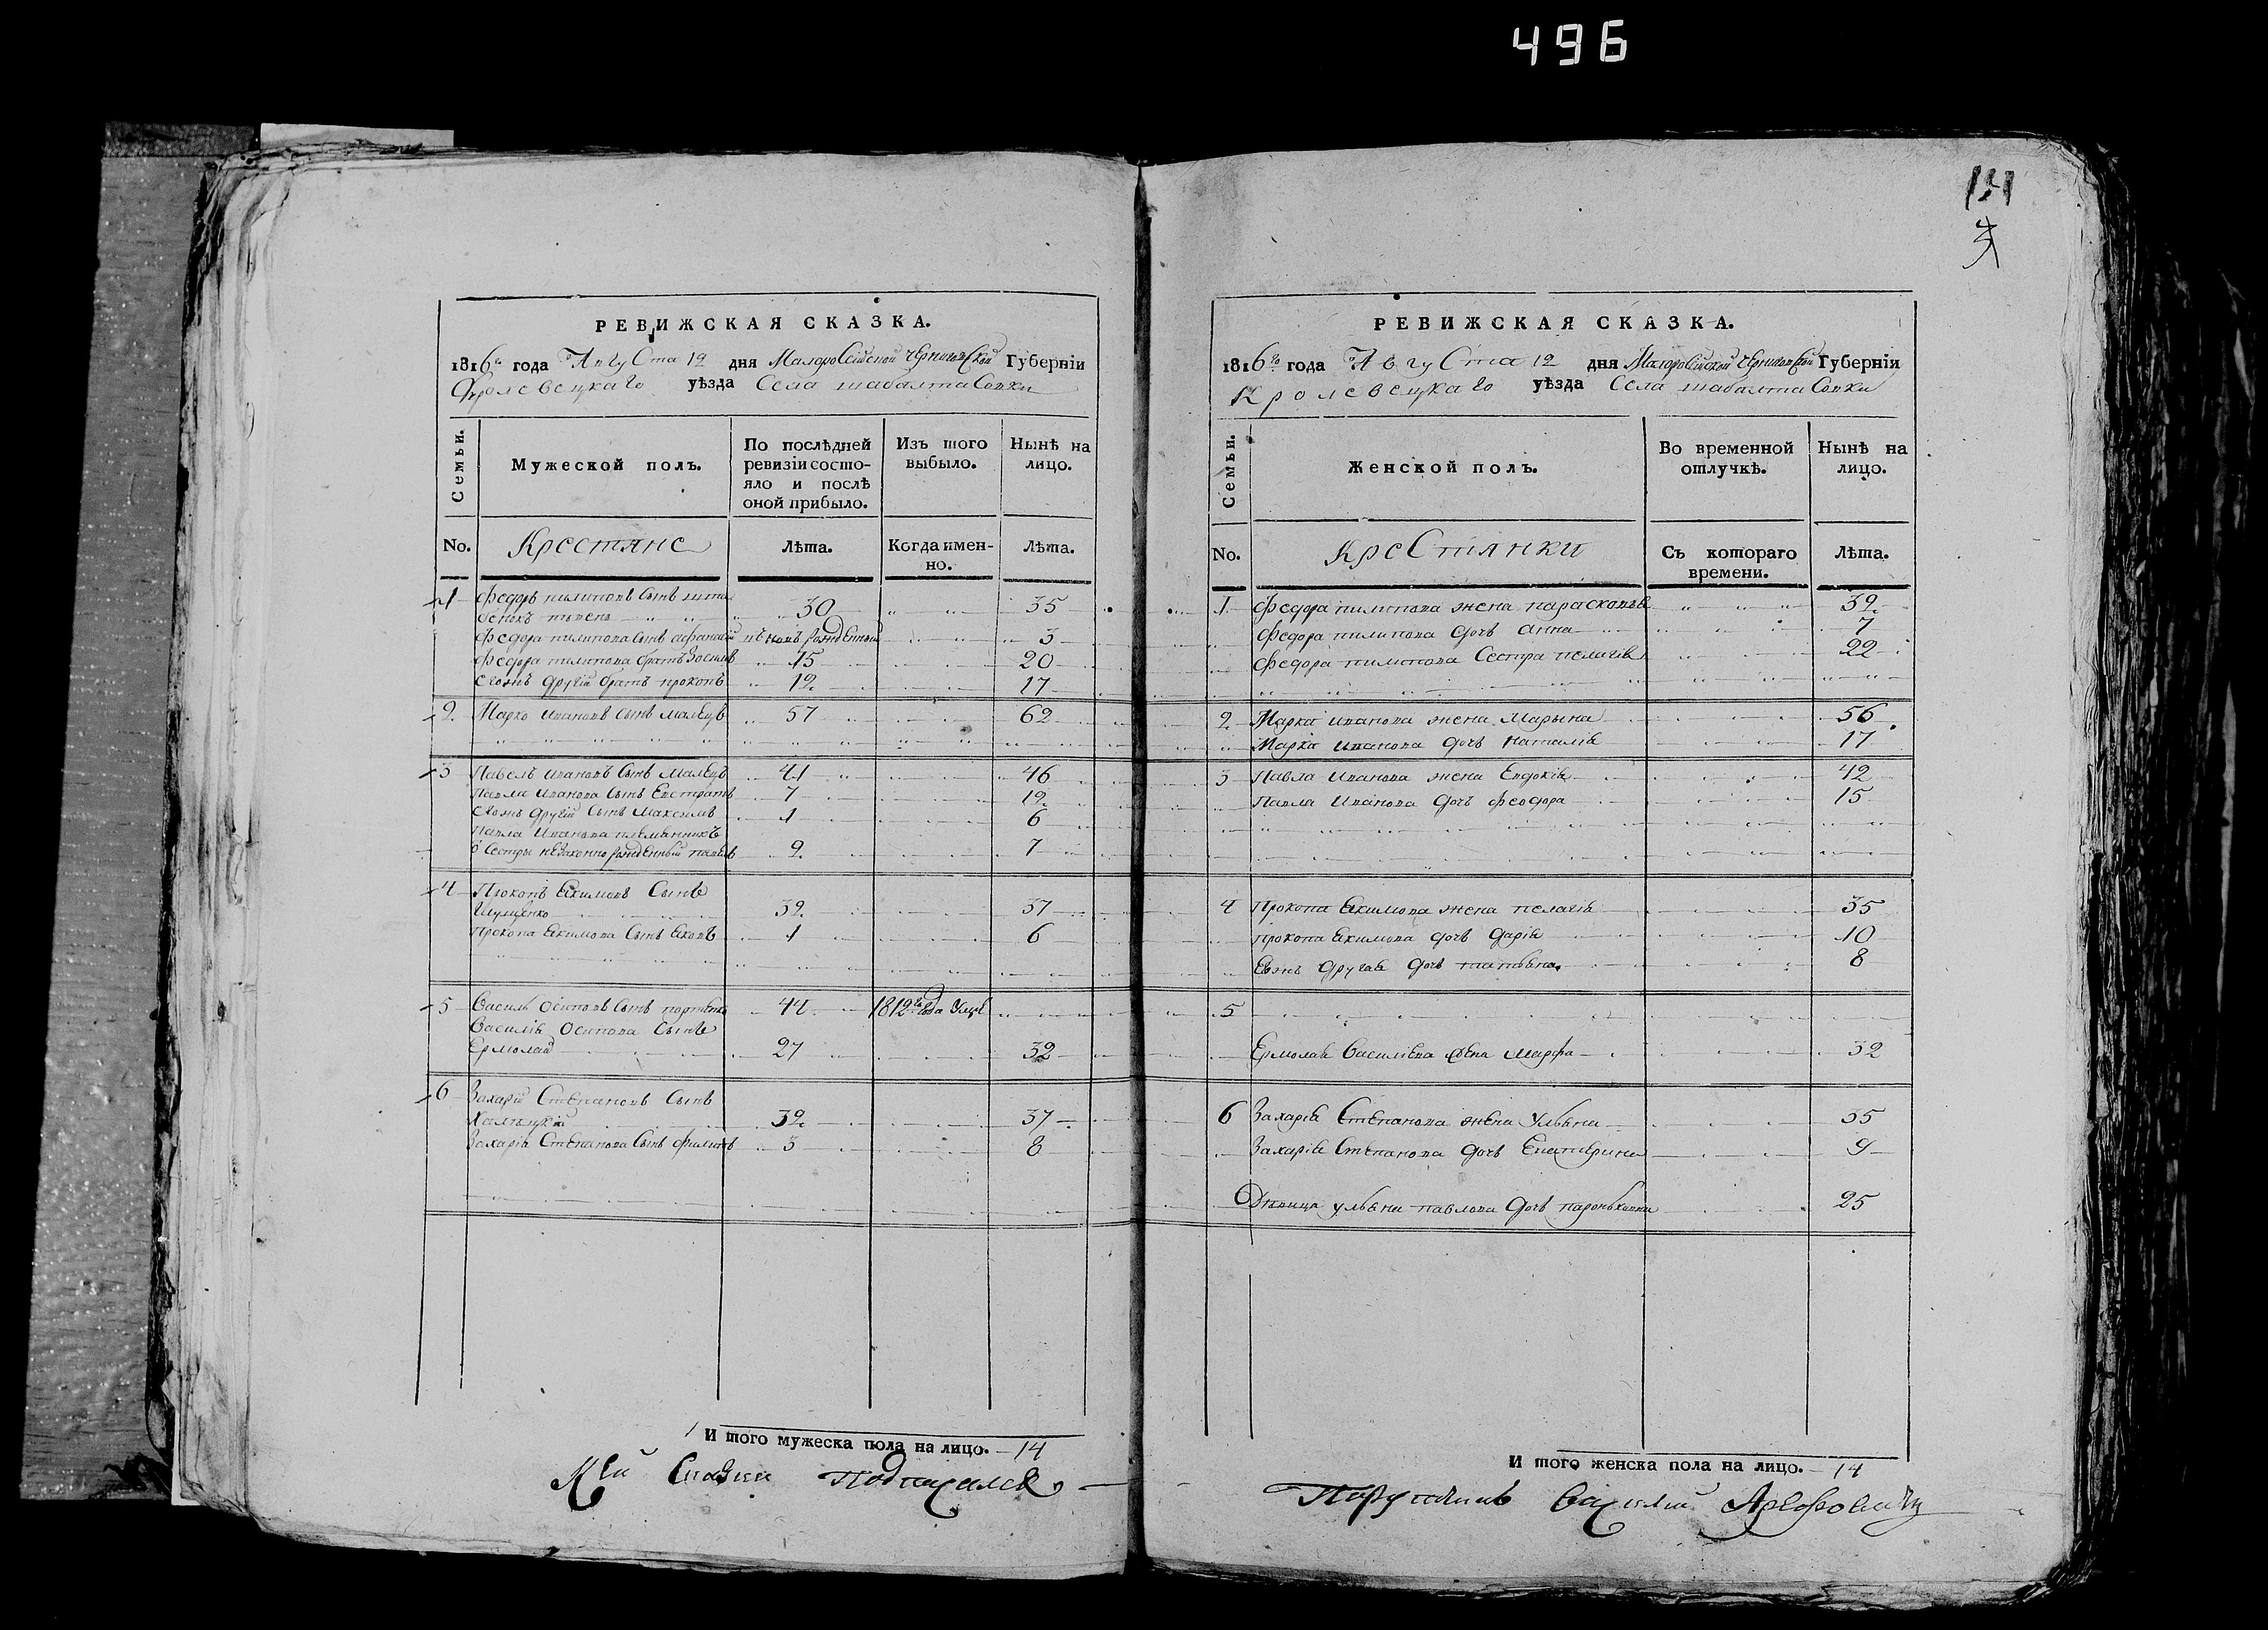 496
РЕВИЖСКАЯ СКАЗКА.
1816го года Августа 12 дня Малоросийской Черниговской Губерніи
Кролевецкаго уѣзда Села шабалтасовки
Семьи.
Мужеской полъ.
По послѣдней ревизіи состояло и послѣ оной прибыло.
Изъ того выбыло.
Нынѣ на лицо.
No.
Крестяне
Лѣта.
Когда именно.
Лѣта.
1 Федоръ пилиповъ сынъ
30 35
Федора пилипова сынъ афанасій новорожденный 3
Федора пилипова братъ 15 20
Егожъ другій братъ прокопъ 12 17
2 Марко ивановъ сынъ малецъ 57 62
3 Павелъ ивановъ сынъ малецъ 41 46
Павла иванова сынъ Евстратъ 7 12
Егожъ другій сынъ Максимъ 1 6
Павла иванова племянникъ
о сестры незаконно рожденный павелъ 2 7
4 Прокопъ Екимовъ сынъ
32 37
Прокопа Екимова сынъ Яковъ 1 6
5 Василь осиповъ сынъ 44 1812го года умре
Василія осипова сынъ
Ермолай 27 32
6 Захарій Степановъ сынъ
32 37
Захарія Степанова сынъ филипъ 3 8
И того мужеска пола на лицо. 14
Сей Сказки подписался
РЕВИЖСКАЯ СКАЗКА.
1816го года Августа 12 дня Малоросійской Черниговской Губерніи
Кролевецкаго уѣзда Села шабалтасовки
Семьи.
Женской полъ.
Во временной отлучкѣ.
Нынѣ на лицо.
No.
Крестянки
Съ котораго времени.
Лѣта.
1 Федора пилипова жена парасковья 32
Федора пилипова дочь анна 7
Федора пилипова сестра пелагія 22
2 Марка иванова жена Марына 56
Марка иванова дочь наталія 17
3 Павла иванова жена Евдокія 42
Павла иванова дочь феодора 15
4 Прокопа Екимова жена пелагія 35
прокопа Екимова дочь дарія 10
Еяжъ другая дочь татьяна 8
5
Ермолая василіева жена марфа 32
6 Захарія Степанова жена Ульяна 35
Захарія Степанова дочь Екатерина 9
Дѣвица ульяна павлова дочь 25
И того женска пола на лицо. 14
Порутчикъ Василій